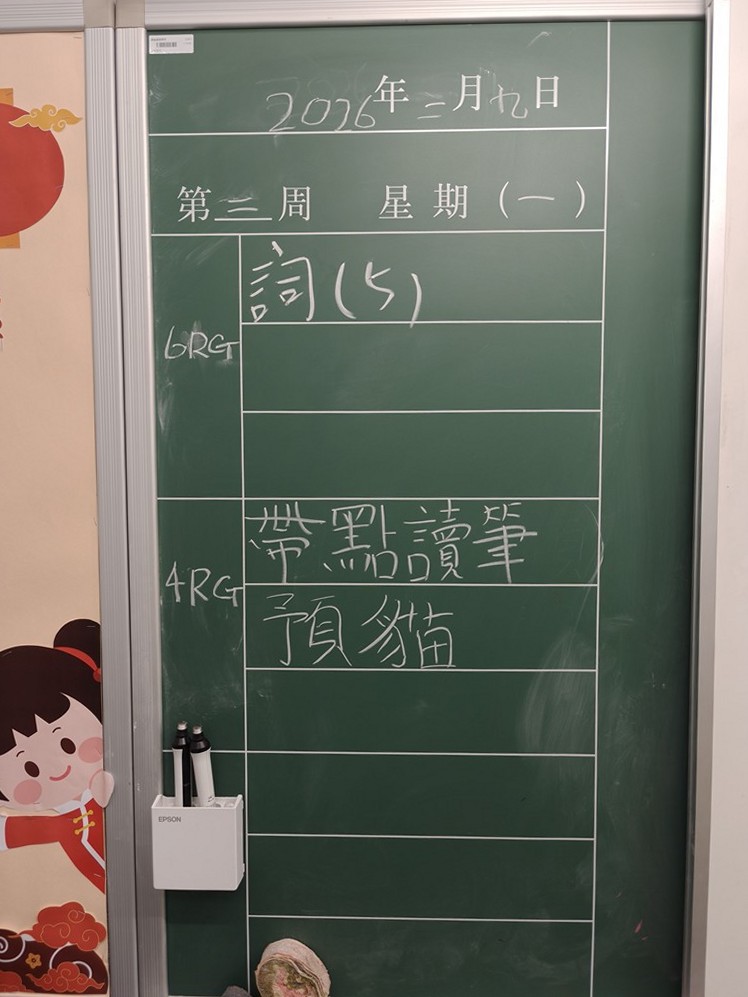 2026年二月九日
第三周 星期（一）
詞(5)
6RG
帶點讀筆
4RG
預貓
EPSON